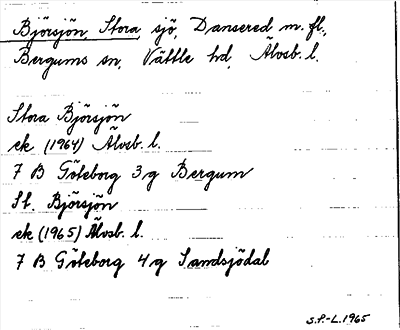 Björsjön, Stora sjö, Dansered m.fl.,
Bergums sn, Vättle hd, Älvsb. l.
Stora Björsjön
ek (1964) Älvsb. l.
7 B Göteborg 3g Bergum
St. Björsjön
ek (1965) Älvsb. l.
7 B Göteborg 4g Sandsjödal
S.P.-L. 1965